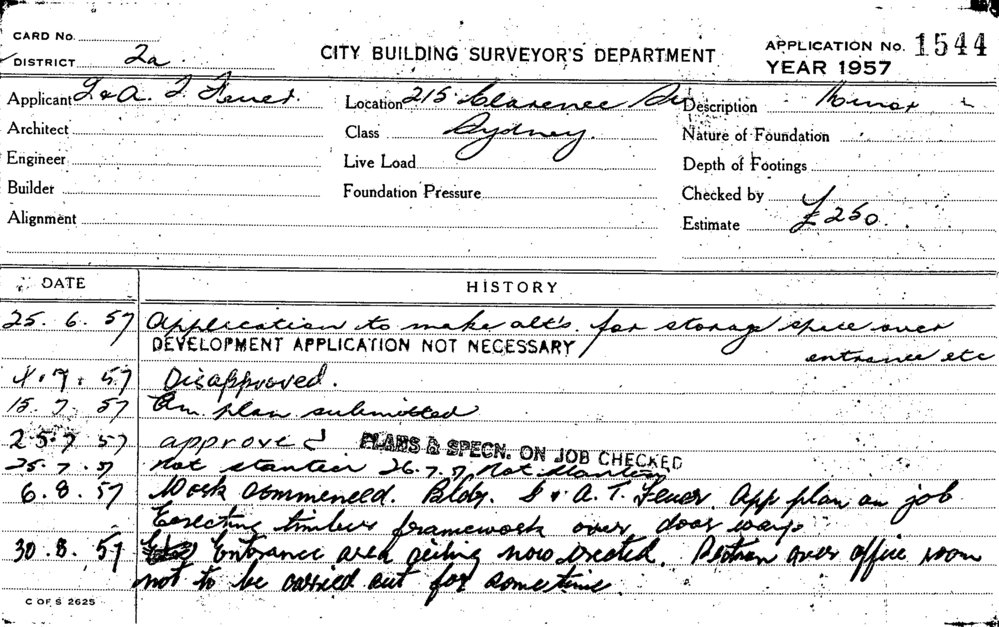 CARD No.
DISTRICT 2a
CITY BUILDING SURVEYOR'S DEPARTMENT
APPLICATION No. 1544
YEAR 1957
Applicant & A. T. Feuer.
Location 215 Clarence St
Sydney.
Description Minor
Architect
Class
Nature of Foundation
Engineer
Live Load
Depth of Footings
Builder
Foundation Pressure
Checked by
Alignment
Estimate £250.
DATE
HISTORY
25.6.57 Application to make alt's. for storage space over
entrance etc
DEVELOPMENT APPLICATION NOT NECESSARY
4.7.57 Disapproved.
15.7.57 Am. plan submitted
25.7.57 approved PLANS & SPECN. ON JOB CHECKED
25.7.57 Not started 26.7.57 Not started
6.8.57 Work commenced. Bldr. & A. T. Feuer. App plan on job
Erecting timber framework over door way.
30.8.57 Entrance area ceiling now erected. Portion over office room
not to be carried out for sometime.
C OF S 2625